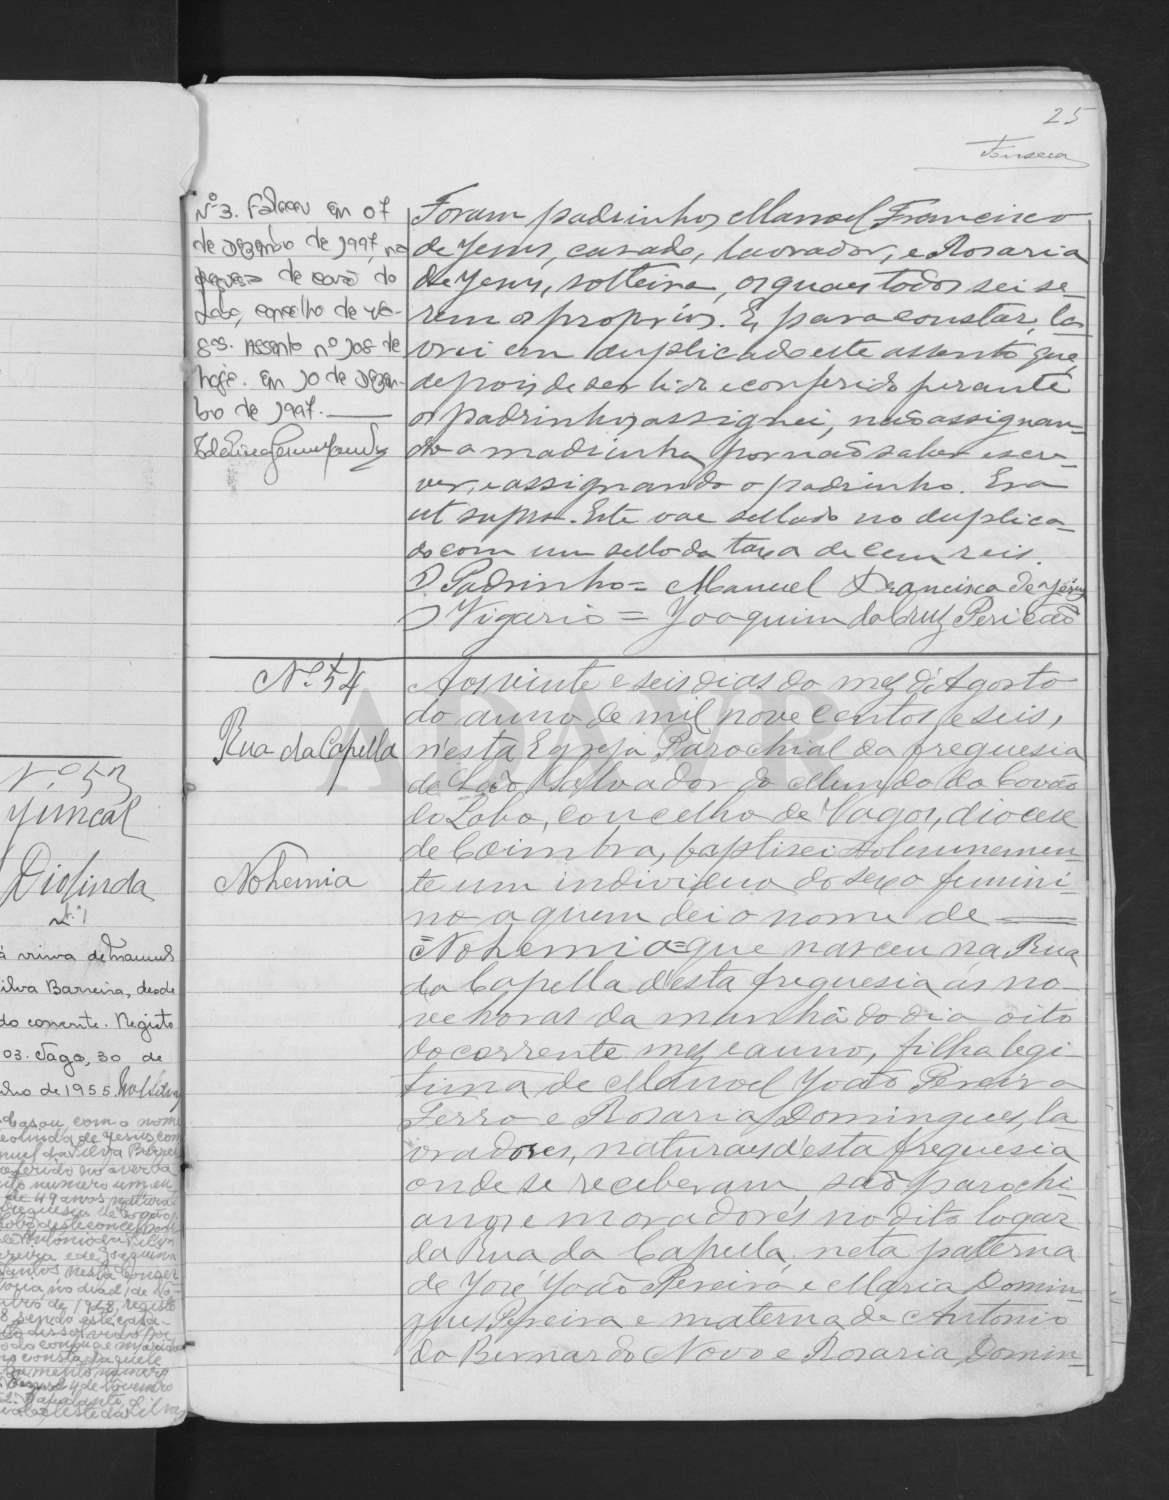 25
Fonseca
Nº 3. Faleceu em 07
de Dezembro de 1997, na
freguesia de Covão do
Lobo, concelho de Va-
gos. Assento nº 108 de
hoje. Em 10 de Dezem-
bro de 1997.
Foram padrinhos Manoel Francisco
de Jesus, casado, lavrador, e Rosaria
de Jesus, solteira, os quaes todos sei se-
rem os proprios. E, para constar, la-
vrei em duplicado este assento que,
depois de ser lido e conferido perante
os padrinhos assignei, não assignan-
do a madrinha por não saber escre-
ver, e assignando o padrinho. Era
ut supra. Este vae sellado no duplica-
do com um sello da taxa de cem reis.
O Padrinho = Manuel Francisco de Jesus
O Vigario = Joaquim da Cruz Pericão
Nº 54
Rua da Capella
Nohemia
Aos vinte e seis dias do mez d'Agosto
do anno de mil nove centos e seis,
n'esta Egreja Parochial da freguesia
de São Salvador do Mundo do Covão
do Lobo, concelho de Vagos, diocese
de Coimbra, baptisei solemnemen-
te um individuo do sexo femini-
no a quem dei o nome de
=Nohemia= que nasceu na Rua
da Capella d'esta freguesia ás no-
ve horas da manhã do dia oito
do corrente mez e anno, filha legi-
tima de Manoel João Pereira
Ferro e Rosaria Domingues, la-
vradores, naturaes d'esta freguesia
onde se receberam, são parochi-
anos e moradores no dito logar
da Rua da Capella, neta paterna
de José João Pereira e Maria Domin-
gues Pereira e materna de Antonio
do Bernardo Novo e Rosaria Domin-
Nº 53
Juncal
Diolinda
Nº 1
viuva de Manuel
ilva Barreira, desde
do corrente. Registo
03. Vagos, 30 de
lho de 1955.
Casou com o nome
eolinda de Jesus com
nuel da Silva
de 49 anos natural
ADAVR